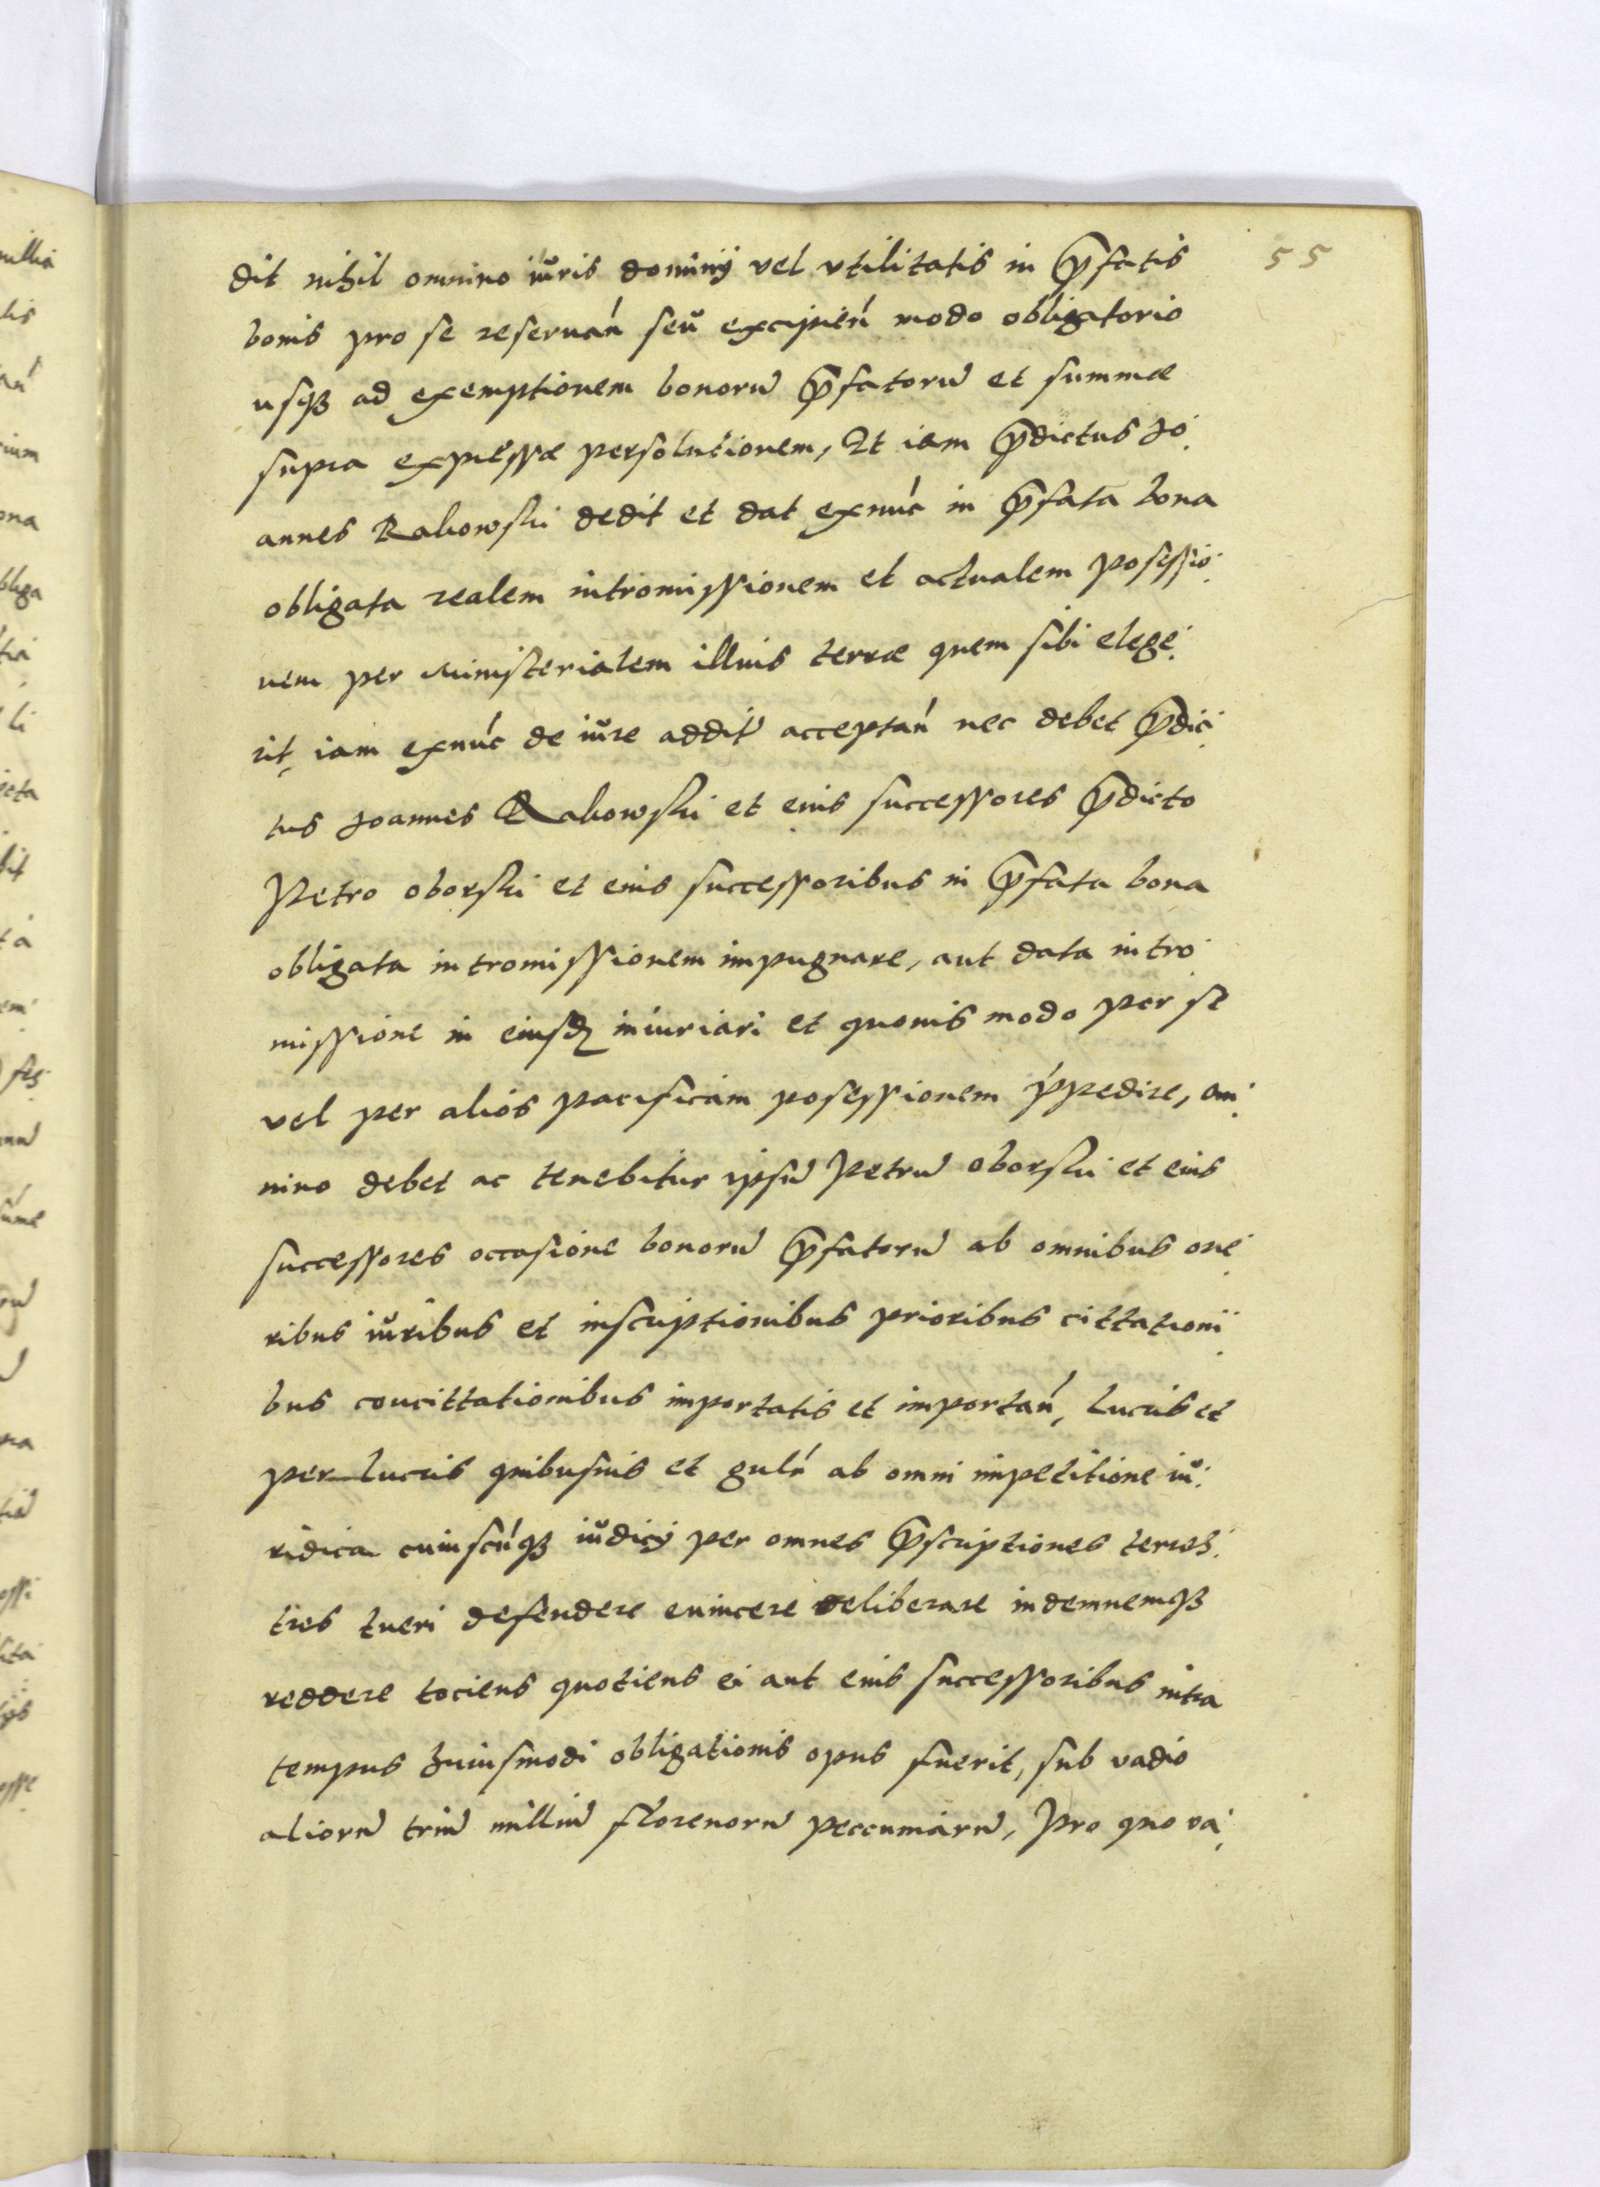 55
dit nihil omnino iŭris dominij vel vtilitatis in p̄fatis
bonis pro se reseruań seŭ excipień modo obligatorio
usqꝫ ad exemptionem bonorū p̄fatorū et summæ
supra expressæ persolutionem, Et iam p̄dictus Jo
annes Rakowski dedit et dat exnúc in p̄fata bona
obligata realem intromissionem et actualem posessio
nem per Ministerialem illius terræ quem sibi elege
rit, iam exnúc de iŭre addit acceptań nec debet p̄dic
tus Joannes Rakowski et eius successores p̄dicto
Petro oborski et eius successoribus in p̄fata bona
obligata intromissionem impugnare, aut data intro
missione in eiusdꝫ iniuriari et quouis modo per se
vel per alios pacificam posessionem p̄pedire, om
nino debet ac tenebitur ipsū Petrū oborski et eius
successores occasione bonorū p̄fatorū ab omnibus one
ribus iŭribus et inscriptionibus prioribus cittationi
bus concittationibus importatis et importań, lucris et
per lucris quibusuis et gulń ab omni impetitione iŭ
ridica cuiuscúqꝫ iŭdicij per omnes p̄scriptiones terres
tres tueri defendere euincere deliberare indemnemqꝫ
reddere tociens quotiens ei aut eius successoribus intra
tempus huiusmodi obligationis opus fuerit, sub vadio
aliorū triū milliū florenorū peccuniarū, Pro quo va